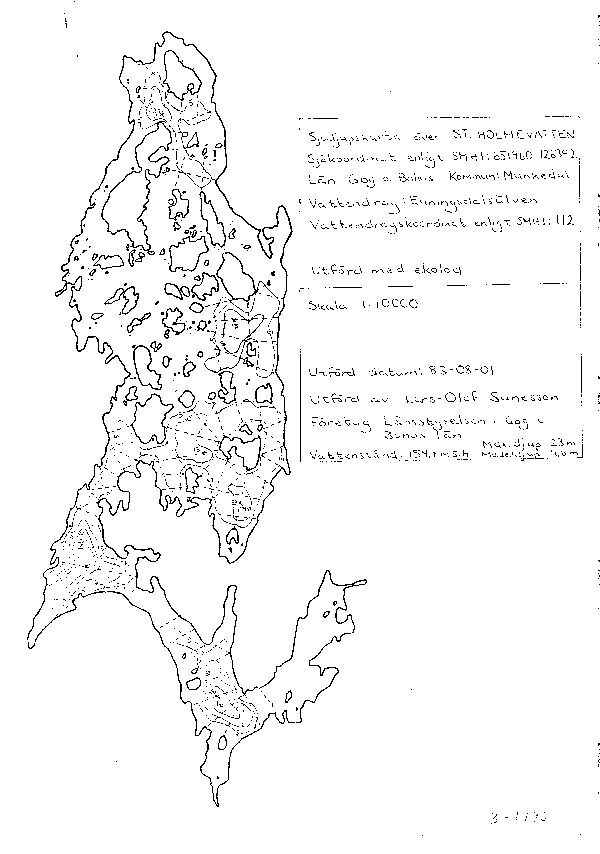 Sjödjupskarta över ST. HOLMEVATTEN
Sjökoordinat enligt SMHI: 651960 126742
Län Gbg o. Bohus Kommun: Munkedal
Vattendrag: Enningsdalsälven
Vattendragskoordinat enligt SMHI: 112
Utförd med ekolog
Skala 1:10000
Utförd datum: 83-08-01
Utförd av Lars-Olof Sunesson
Företag Länsstyrelsen i Gbg o
Bohus län
Max.djup 23m
Vattenstånd Medeldjup